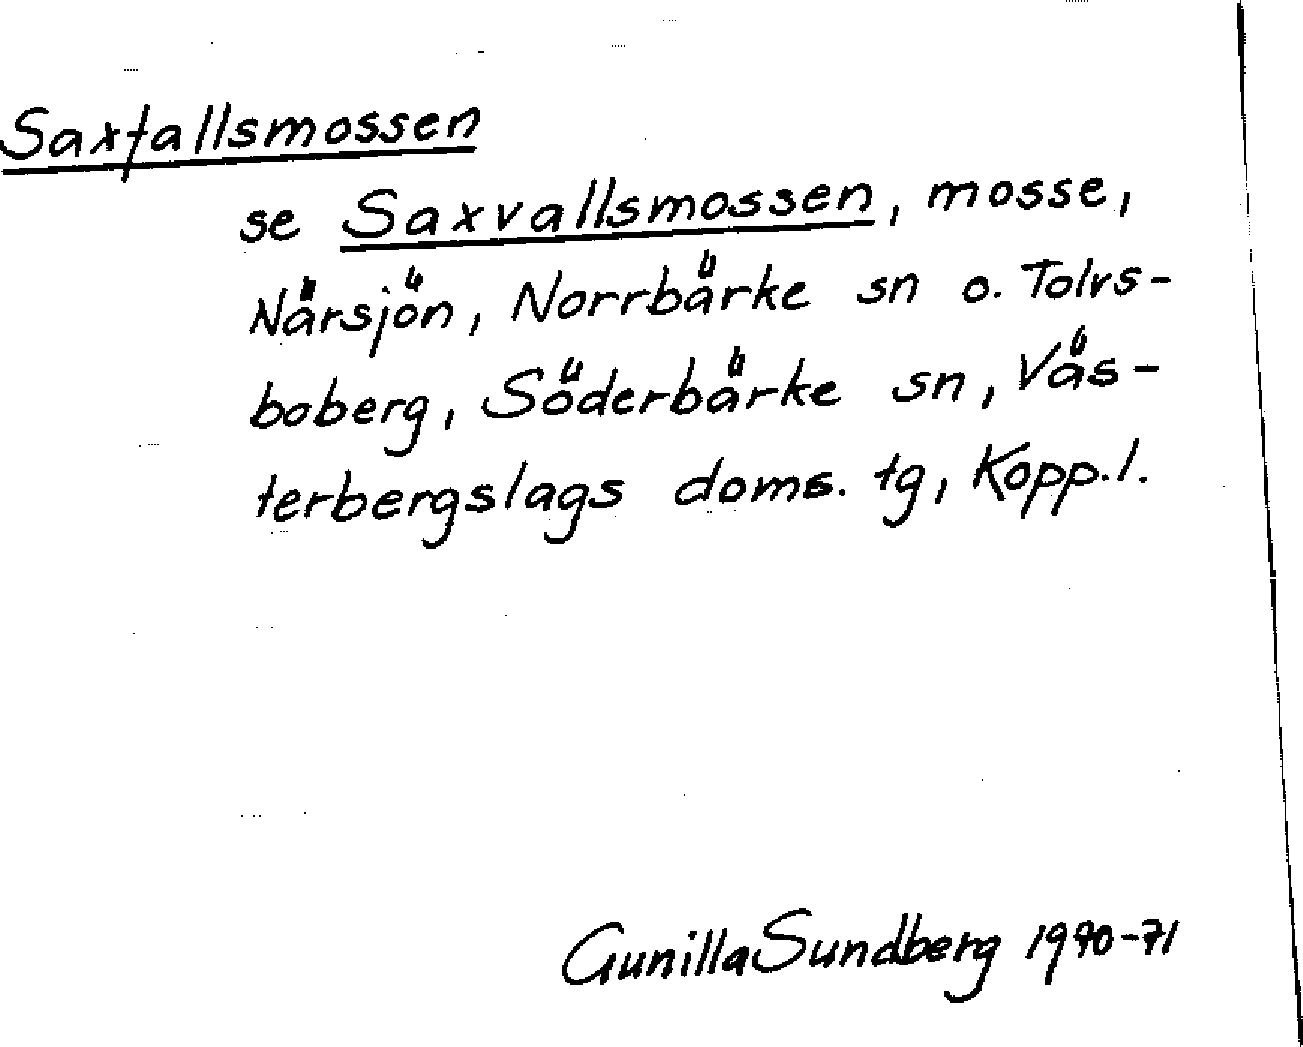 Saxfallsmossen
se Saxvallsmossen, mosse,
Närsjön, Norrbärke sn o. Tolvs-
boberg, Söderbärke sn, Väs-
terbergslags doms. tg, Kopp. l.
Gunilla Sundberg 1970-71